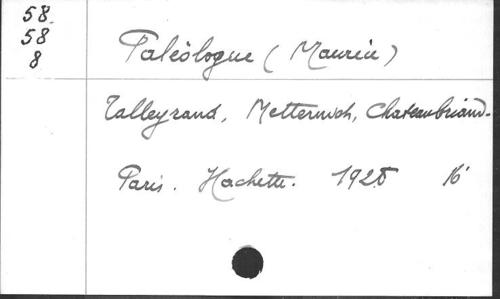 58
58
8
Paléologue (Maurice)
Talleyrand, Metternich, Chateaubriand.
Paris. Hachette. 1928 16°